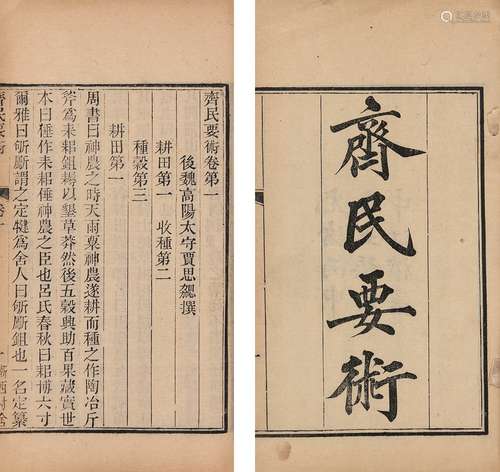 齊民要術
齊民要術卷第一
後魏高陽太守賈思勰撰
耕田第一　收種第二
種穀第三
耕田第一
周書曰神農之時天雨粟神農遂耕而種之作陶冶斤
斧爲耒耜鉏耨以墾草莽然後五穀興助百果藏實世
本曰倕作耒耜倕神農之臣也呂氏春秋曰耜博六寸
爾雅曰斪斸謂之定犍爲舍人曰斪斸鉏也一名定纂
齊民要術　卷一　一　漸西村舍